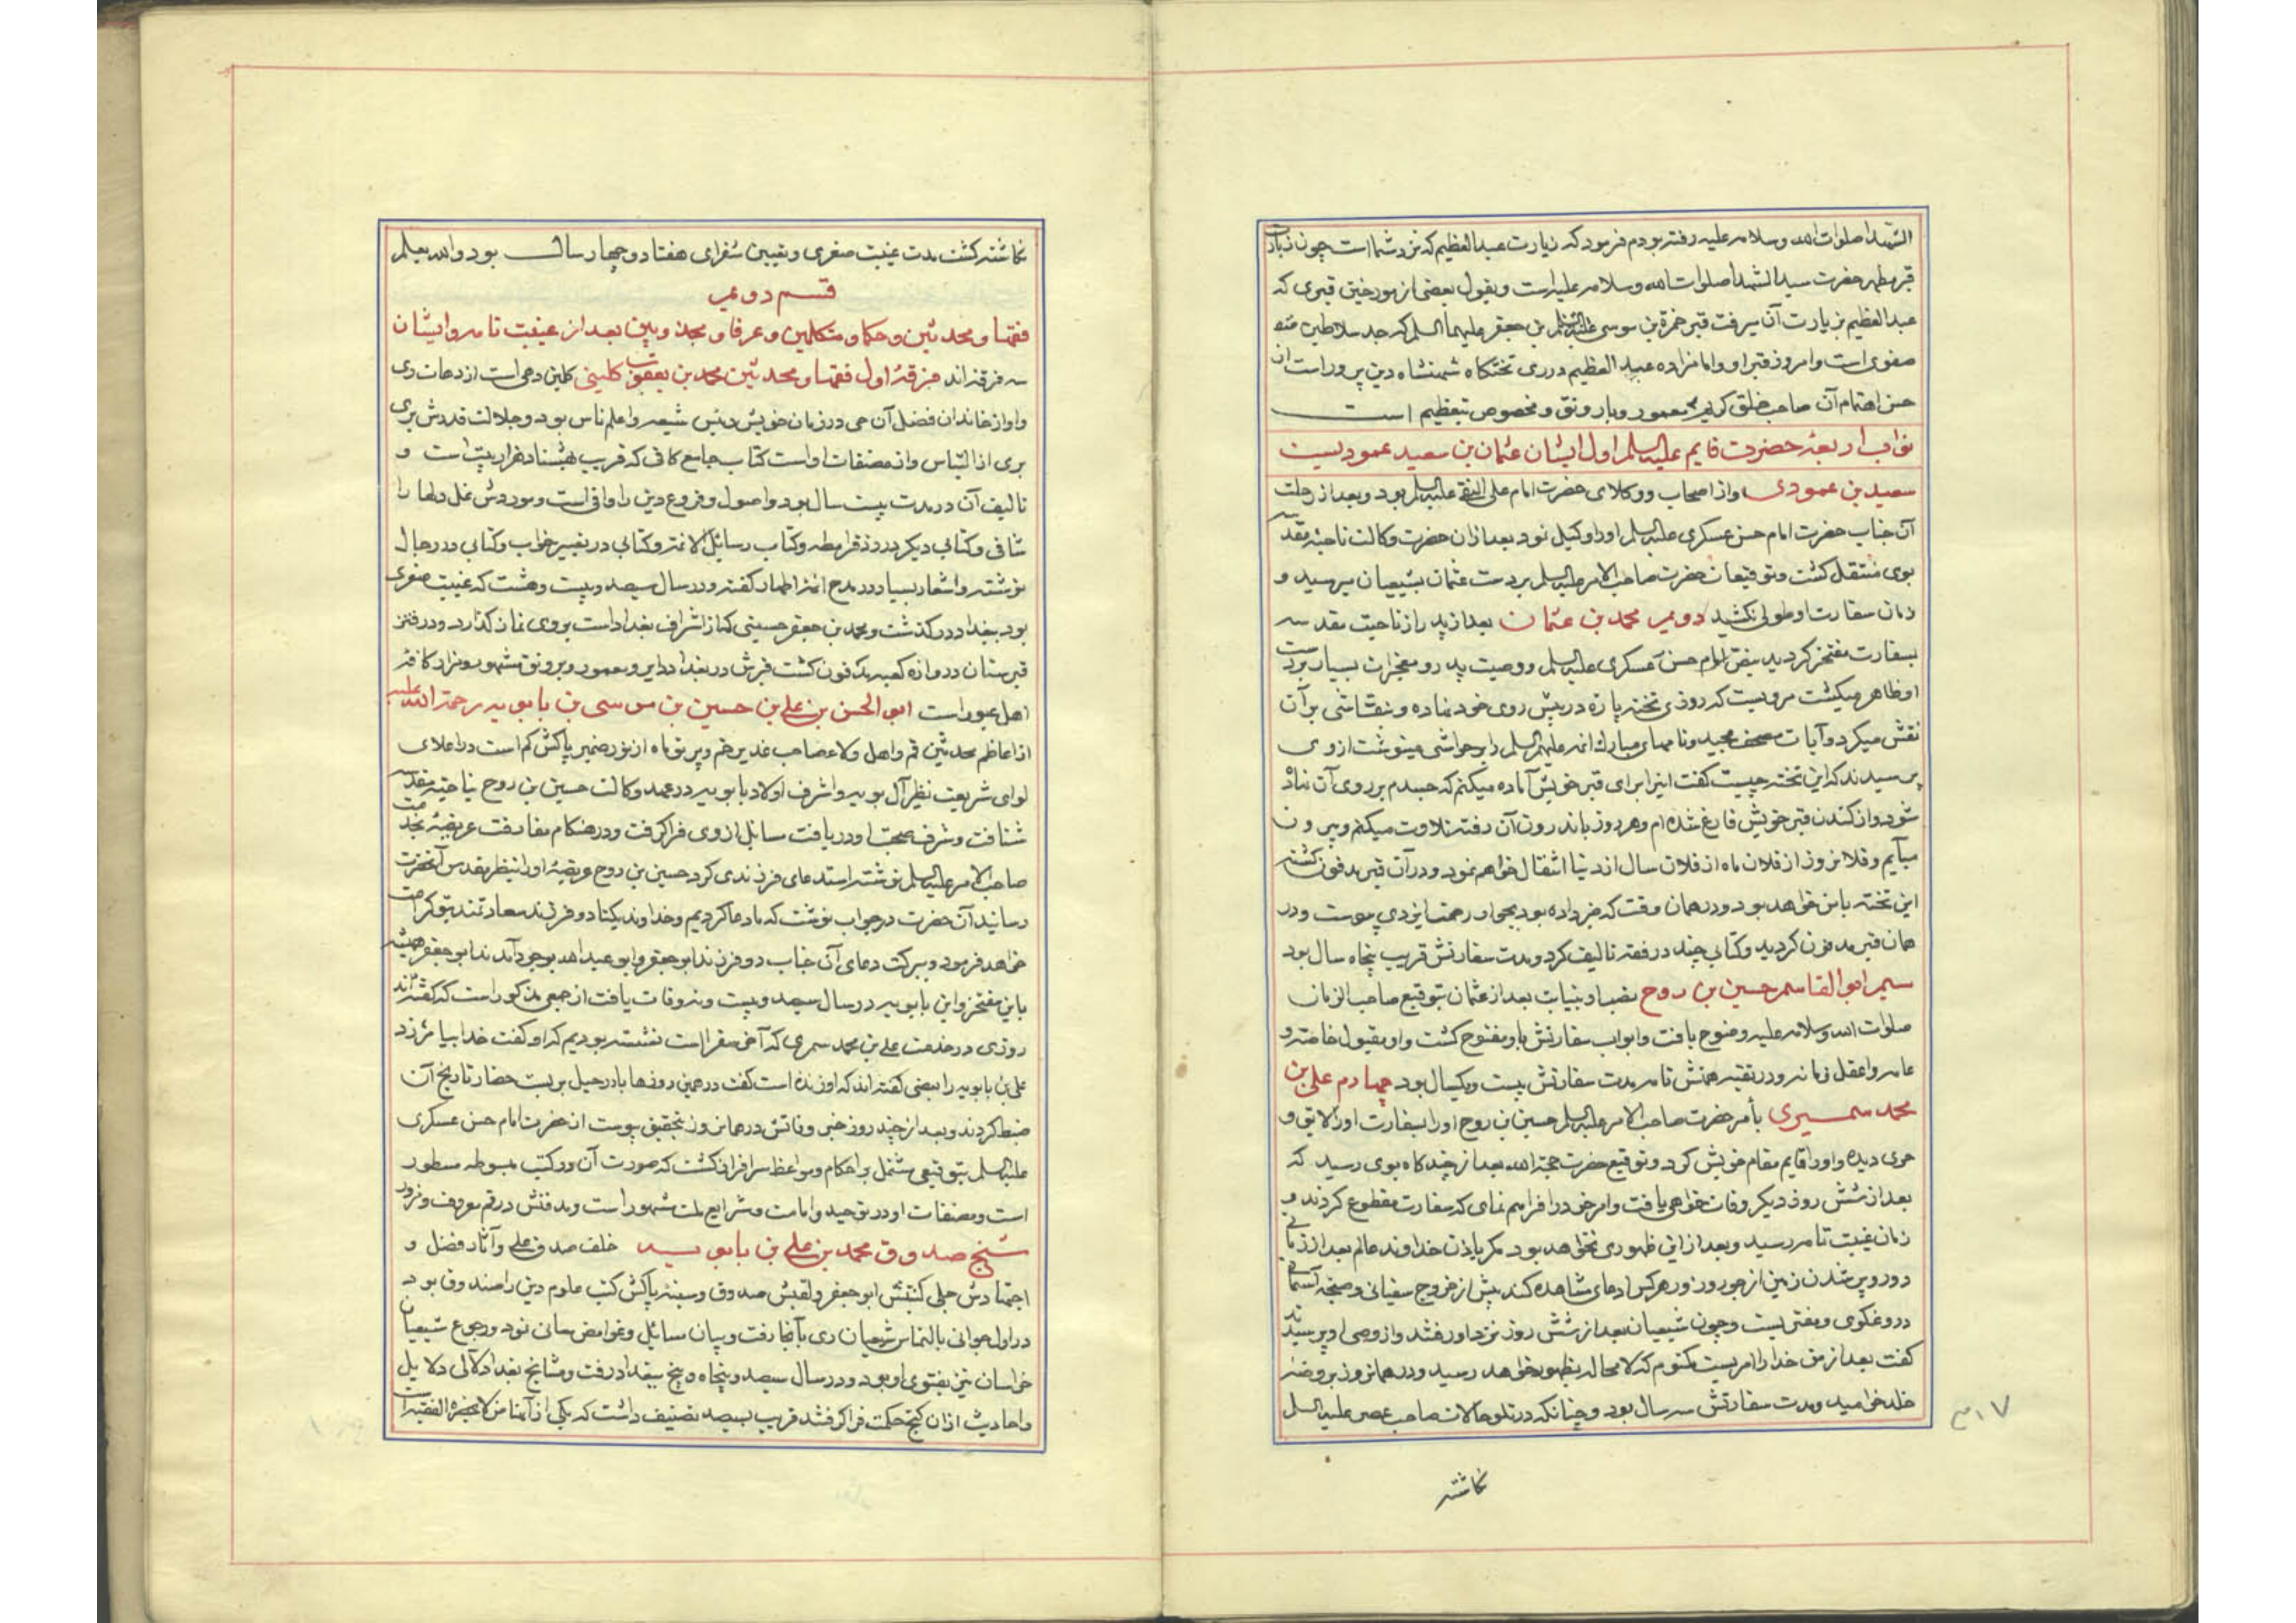 الشهدا صلوات الله وسلامه علیه رفته بودم فرمود که زیارت عبدالعظیم که نزد شما است چون زیارت
قبر مطهر حضرت سید الشهدا صلوات الله وسلامه علیه است و بقول بعضی از مورخین قبری که
عبدالعظیم بزیارت آن میرفت قبر حمزة بن موسی بن جعفر علیهما السلم که جد سلاطین
صفوی است و امروز قبر او و امامزاده عبدالعظیم در ری تختکاه شهنشاه دین پرور است از
حسن اهتمام آن صاحب خلق کریم معمور و بارونق و مخصوص بتعظیم است
نواب اربعه حضرت قایم علیه السلم اول ایشان عثمان بن سعید عمودیست
سعید بن عمودی و از اصحاب و وکلای حضرت امام علی النقی علیه السلم بود و بعد از رحلت
آن جناب حضرت امام حسن عسکری علیه السلم او را وکیل نمود بعد از آن حضرت وکالت ناحیه مقدسه
بوی منتقل کشت و توقیعات حضرت صاحب الامر علیه السلم بر دست عثمان بشیعیان میرسید و
زمان سفارت او طولی نکشید دویم محمد بن عثمان بعد از پدر از ناحیت مقدسه
بسفارت مفتخر کردید بنص امام حسن عسکری علیه السلم و وصیت پدر و معجزات بسیار بر دست
او ظاهر میکشت مرویست که روزی تخته پاره در پیش روی خود نهاده و نقاشی بر آن
نقش میکرد و آیات مصحف مجید و نامهای مبارک ائمه علیهم السلم را بر حواشی مینوشت از وی
پرسیدند که این تخته چیست کفت اینرا برای قبر خویش آماده میکنم که جسدم بر روی آن نهاده
شود و از کندن قبر خویش فارغ شده ام و هر روز باندرون آن رفته تلاوت میکنم و بیرون
میآیم و فلانروز از فلان ماه از فلان سال از دنیا انتقال خواهم نمود و در آن قبر مدفون کشته
این تخته با من خواهد بود و در همان وقت که خبر داده بود بجوار رحمت ایزدی پیوست و در
همان قبر مدفون کردید و کتابی چند در فقه تالیف کرد و مدت سفارتش قریب پنجاه سال بود
سیم ابوالقاسم حسین بن روح بعد از عثمان بتوقیع صاحب الزمان
صلوات الله وسلامه علیه وضوح یافت و ابواب سفارتش باو مفتوح کشت و او مقبول خاصه و
عامه و اعقل زمانه و در تقیه همتش تام مدت سفارتش بیست و یکسال بود چهارم علی بن
محمد سمیری بأمر حضرت صاحب الامر علیه السلم حسین بن روح او را بسفارت اولایق و
حری دیده و او را قایم مقام خویش کرد و توقیع حضرت حجة الله بعد از چندکاه بوی رسید که
بعد از شش روز دیکر وفات خواهی یافت و امر خود را فراهم نمای که سفارت مقطوع کردند و
زمان غیبت تامه رسید و بعد از این ظهوری نخواهد بود مکر باذن خداوند عالم بعد از زمانی
دور و پر شدن زمین از جور و زور هرکس ادعای مشاهده کند پیش از خروج سفیانی و صیحه آسمانی
دروغکوی و مفتریست و چون شیعیان بعد از شش روز نزد او رفتند و از وصی او پرسیدند
کفت بعد از من خدا را امریست مکتوم که لامحاله بظهور خواهد رسید و در همانروز بروضه
خلد خرامید و مدت سفارتش سه سال بود و چنانکه در تلو حالات صاحب عصر علیه السلم
نکاشته
نکاشته کشت مدت غیبت صغری و تعیین سفرای هفتاد و چهار سال بود والله یعلم
قسم دویم
فقها و محدثین و حکما و متکلمین و عرفا و مجذوبین بعد از غیبت تامه و ایشان
سه فرقه اند فرقه اول فقها و محدثین محمد بن یعقوب کلینی کلین دهی است از دهات ری
و او از خاندان فضل آن حی در زمان خویش رئیس شیعه و اعلم ناس بود و جلالت قدرش بری
بری از التباس و از مصنفات او است کتاب جامع کافی که قریب هشتاد هزار بیت است و
تالیف آن در مدت بیست سال بود و اصول و فروع دین را وافی است و موردش غلل دلها را
شافی و کتابی دیکر در رد قرامطه و کتاب رسائل الائمه و کتابی در تعبیر خواب و کتابی در رجال
نوشته و اشعار بسیار در مدح ائمه اطهار کفته و در سال سیصد و بیست و هشت که غیبت صغری
بود ببغداد درکذشت و محمد بن جعفر حسینی که از اشراف بغداد است بروی نماز کذارد و در
قبرستان دروازه کعبه مدفون کشت قبرش در بغداد دایر و معمور و بر رونق مشهور و مزار کافه
اهل عبور است ابو الحسن بن علی بن حسین بن موسی بن بابویه رحمة الله علیه
از اعاظم محدثین قم و اهل ولاء صاحب غدیر خم و پرتو ماه از نور ضمیر پاکش کم است در اعلای
لوای شریعت نظیر آل بویه و اشرف اولاد بابویه در عهد وکالت حسین بن روح بناحیه مقدسه
شتافت و شرف صحبت او دریافت مسایل از وی فراکرفت و در هنکام مفارقت عریضه بخدمت
صاحب الامر علیه السلم نوشته استدعای فرزندی کرد حسین بن روح عریضه او را بنظر مقدس آنحضرت
رسانید آن حضرت در جواب نوشت که ما دعا کردیم و خداوند یکتا دو فرزند سعادتمند بتو کرامت
خواهد فرمود و ببرکت دعای آن جناب دو فرزند ابو جعفر و ابو عبدالله بوجود آمدند ابو جعفر همیشه
باین مفتخر و ابن بابویه در سال سیصد و بیست و نه وفات یافت از جمعی مذکور است که کفته اند
روزی در خدمت علی بن محمد سمری که آخر سفرا است نشسته بودیم که او کفت خدا بیامرزد
علی بن بابویه را بعضی کفته اند که او زنده است کفت در همین روزها بار رحیل بربست حضار تاریخ آن
ضبط کردند و بعد از چند روز خبر وفاتش در همانروز بتحقیق پیوست از حضرت امام حسن عسکری
علیه السلم بتوقیعی مشتمل بر احکام و مواعظ سرافراز کشت که صورت آن در کتب مبسوطه مسطور
است و مصنفات او در توحید و امامت و شرایع ملت مشهور است و مدفنش در قم معروف و مزور
شیخ صدوق محمد بن علی بن بابویه خلف صدق علی و آثار فضل و
اجتهادش جلی کنیتش ابو جعفر و لقبش صدوق و سینه پاکش کتب علوم دین را صندوق بود
در اول جوانی بالتماس شیعیان ری بآنجا رفت و بیان مسائل و غوامض معانی نمود و رجوع شیعیان
خراسان نیز بفتوی او بود و در سال سیصد و پنجاه و پنج ببغداد رفت و مشایخ بغداد لآلی دلایل
و احادیث از آن کنج حکمت فراکرفتند قریب بسیصد تصنیف داشت که یکی از آنها من لا یحضره الفقیه است